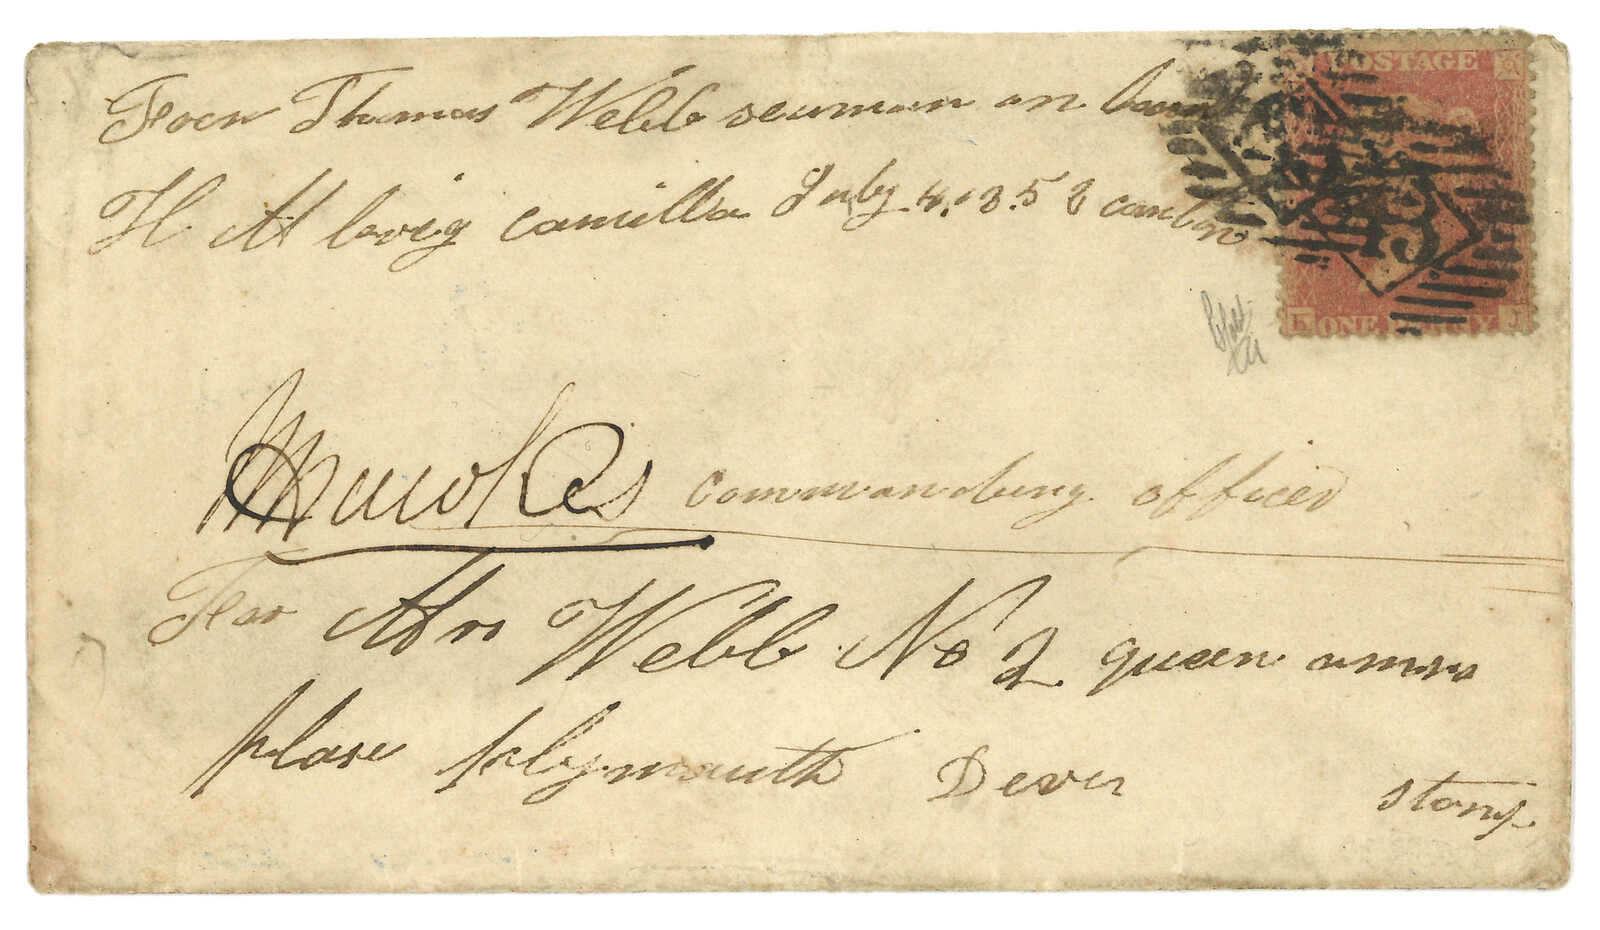 From Thomas Webb seaman on board
H M brig camilla July 4. 1858 canton
commanding officer
For Mrs Webb No 2 queen anns
plase plymouth Deven
stons
POSTAGE
ONE PENNY